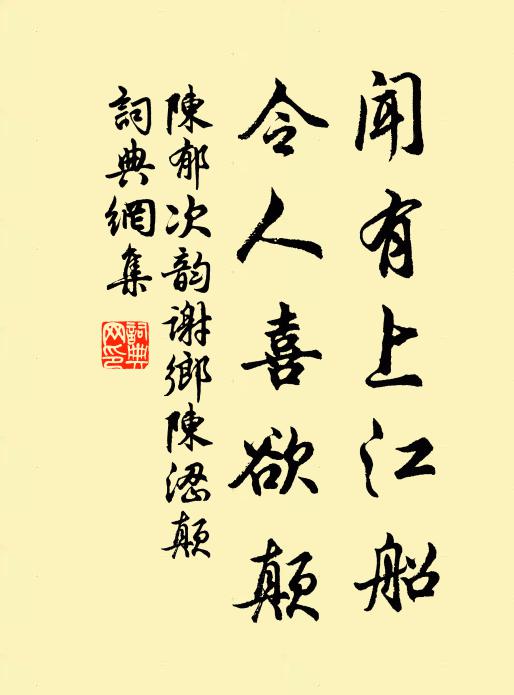 闻有上江船
令人喜欲颠
陳郁次韵謝鄉陳浥颠
詞典網集
詞典网印